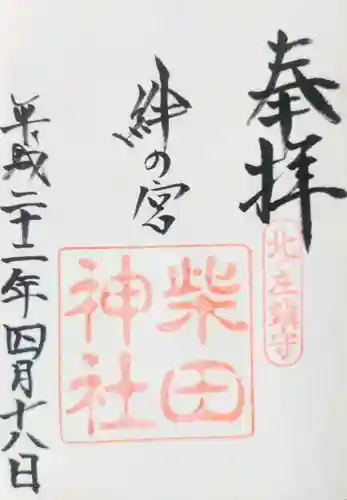 奉拝
北之鎮守
絆の宮
柴田
神社
平成二十二年四月十八日